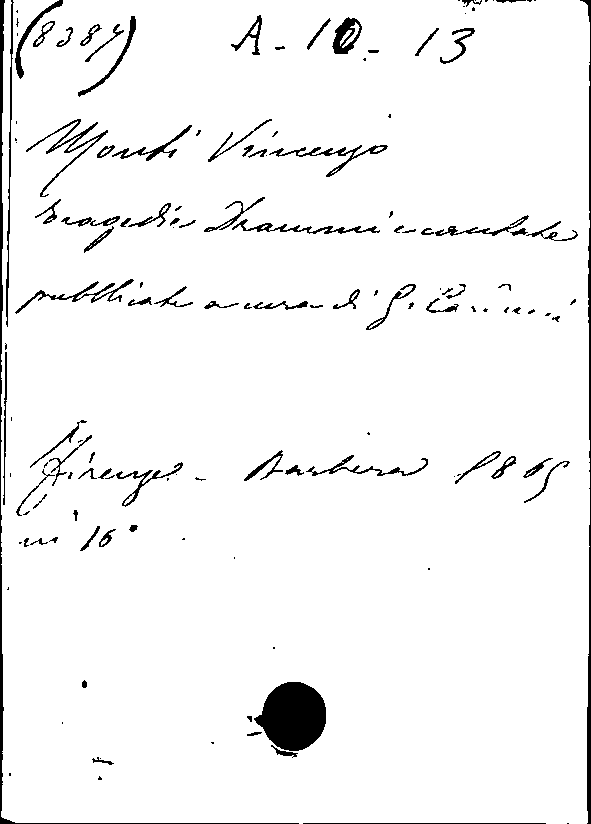 (8387) A - 10 - 13
Monti Vincenzo
Tragedie Drammi e cantate
pubblicate a cura di G. Carducci
Firenze - Barbera 1865
in 16°